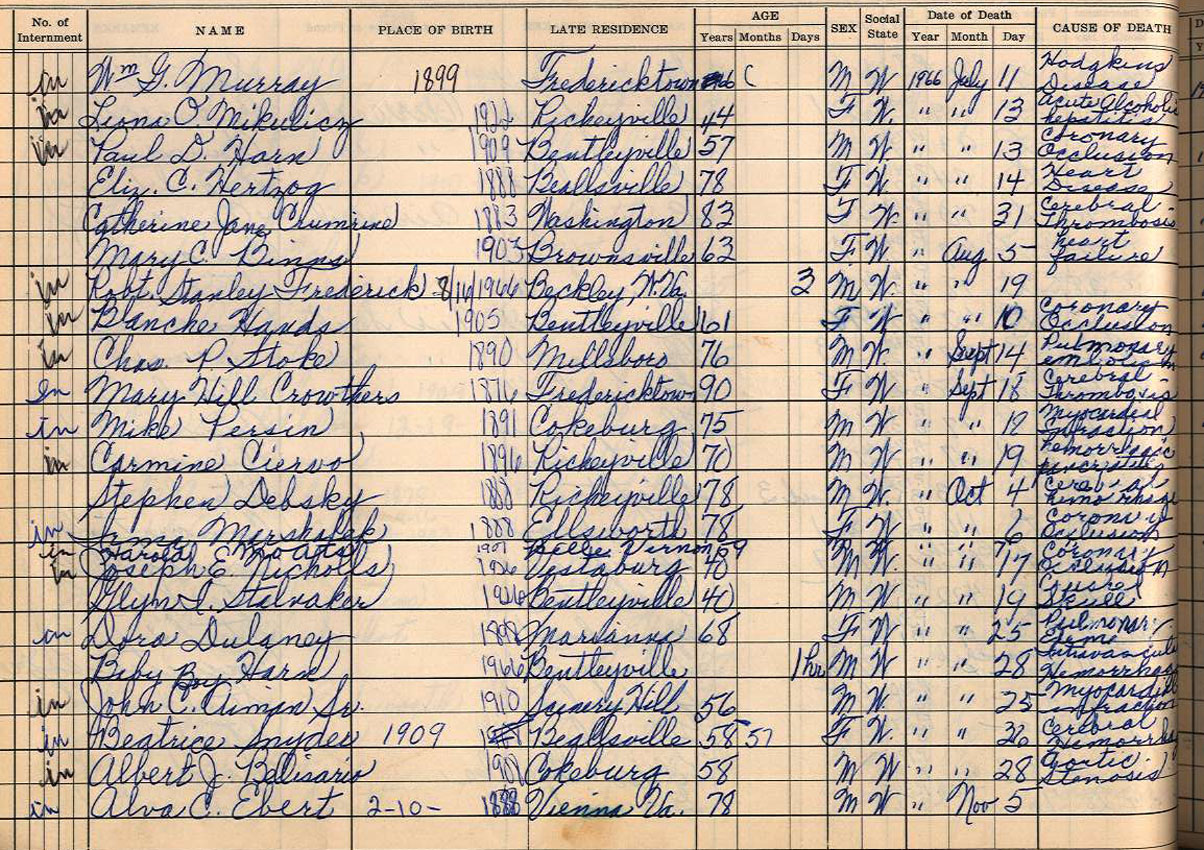 No. of Internment NAME PLACE OF BIRTH LATE RESIDENCE AGE Years Months Days SEX Social State Date of Death Year Month Day CAUSE OF DEATH
in Wm G. Murray 1899 Fredericktown 66 M W 1966 July 11 Hodgkins Disease
in Liona O Mikulicz 1922 Rickeyville 44 F W. " " 13 Acute Alcoholic hepatitis
in Paul D. Harn 1909 Bentleyville 57 M W " " 13 Coronary Occlusion
Eliz. C. Hertzog 1888 Beallsville 78 F W. " " 14 Heart Disease
Catherine Jane Crumrine 1883 Washington 83 F W. " " 31 Cerebral Thrombosis
Mary C. Binns 1903 Brownsville 63 F W. " Aug 5 heart failure
in Robt. Stanley Frederick 8/16/1966 Beckley W. Va. 3 M W. " " 19
in Blanche Hands 1905 Bentleyville 61 F W " " 10 Coronary Occlusion
in Chas. P. Stoke 1890 Millsboro 76 M W. " Sept 14 Pulmonary embolism
in Mary Hill Crowthers 1876 Fredericktown 90 F W " Sept 18 Cerebral Thrombosis
in Mike Persin 1891 Cokeburg 75 M W " " 19 Myocardial
in Carmine Ciervo 1896 Rickeyville 70 M W. " " 19 hemorrhagic pancreatitis
Stephen Debsky 1888 Rickeyville 78 M W. " Oct 4
in Irma Marshalek 1888 Ellsworth 78 F W " " 6 Coronary Occlusion
in Harold E. 1907 Belle Vernon 59 " " 7
in Joseph E. Nicholls 1926 Vestaburg 40 M W. " " 17 Coronary Occlusion
Glyn I. Stalnaker 1926 Bentleyville 40 M W " " 19 Skull
in Dora Dulaney 1898 Marianna 68 F W " " 25 Pulmonary
Baby Boy Harn 1966 Bentleyville 1 hr M W " " 28 Hemorrhage
in John C. Aiman Sr. 1910 Scenery Hill 56 M W. " " 25 Myocardial infraction
in Beatrice Snyder 1909 Beallsville 58 57 F W. " " 26 Cerebral
in Albert J. Bellisario 1907 Cokeburg 58 M W " " 28 Aortic Stenosis
in Alva C. Ebert 2-10- 1888 Vienna Va. 78 M W " Nov 5